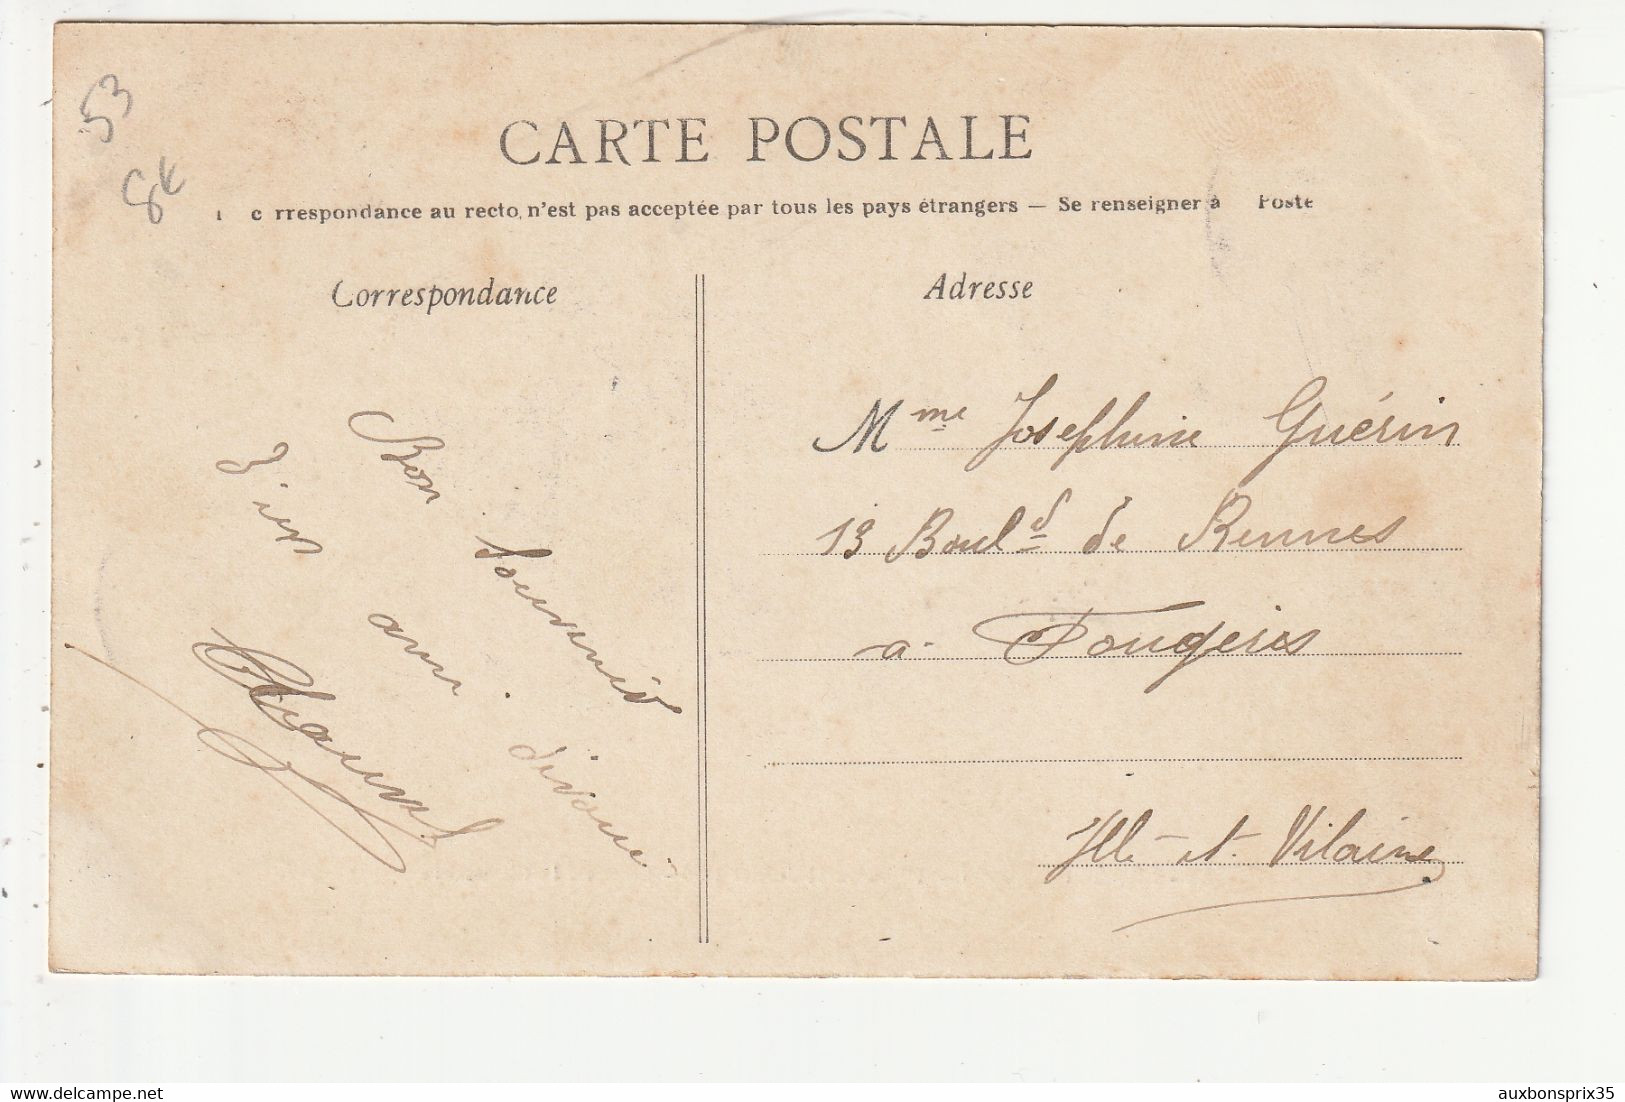 53
8€
CARTE POSTALE
c rrespondance au recto, n'est pas acceptée par tous les pays étrangers — Se renseigner à Poste
Correspondance
Bon Souvenir
d'un ami dévoué
Adresse
Mme Josephine Guérin
13 Bould de Rennes
a Fougères
Ille-et-Vilaine
delcampe.net
auxbonsprix35